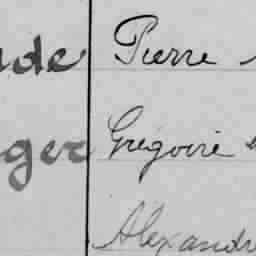 de Pierre
ger Grégoire
Alexandre